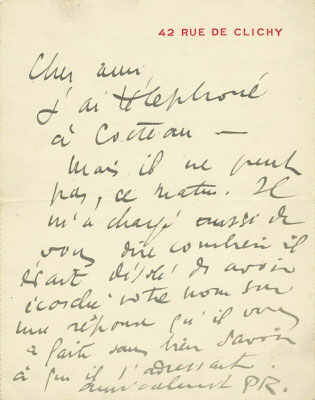 42 RUE DE CLICHY
Cher ami,
j'ai téléphoné
à Cocteau —
Mais il ne peut
pas, ce matin. Il
m'a chargé aussi de
vous dire combien il
était désolé d'avoir
écorché votre nom sur
une réponse qu'il vous
a faite sans bien savoir
à qui il s'adressait.
amicalement P.R.